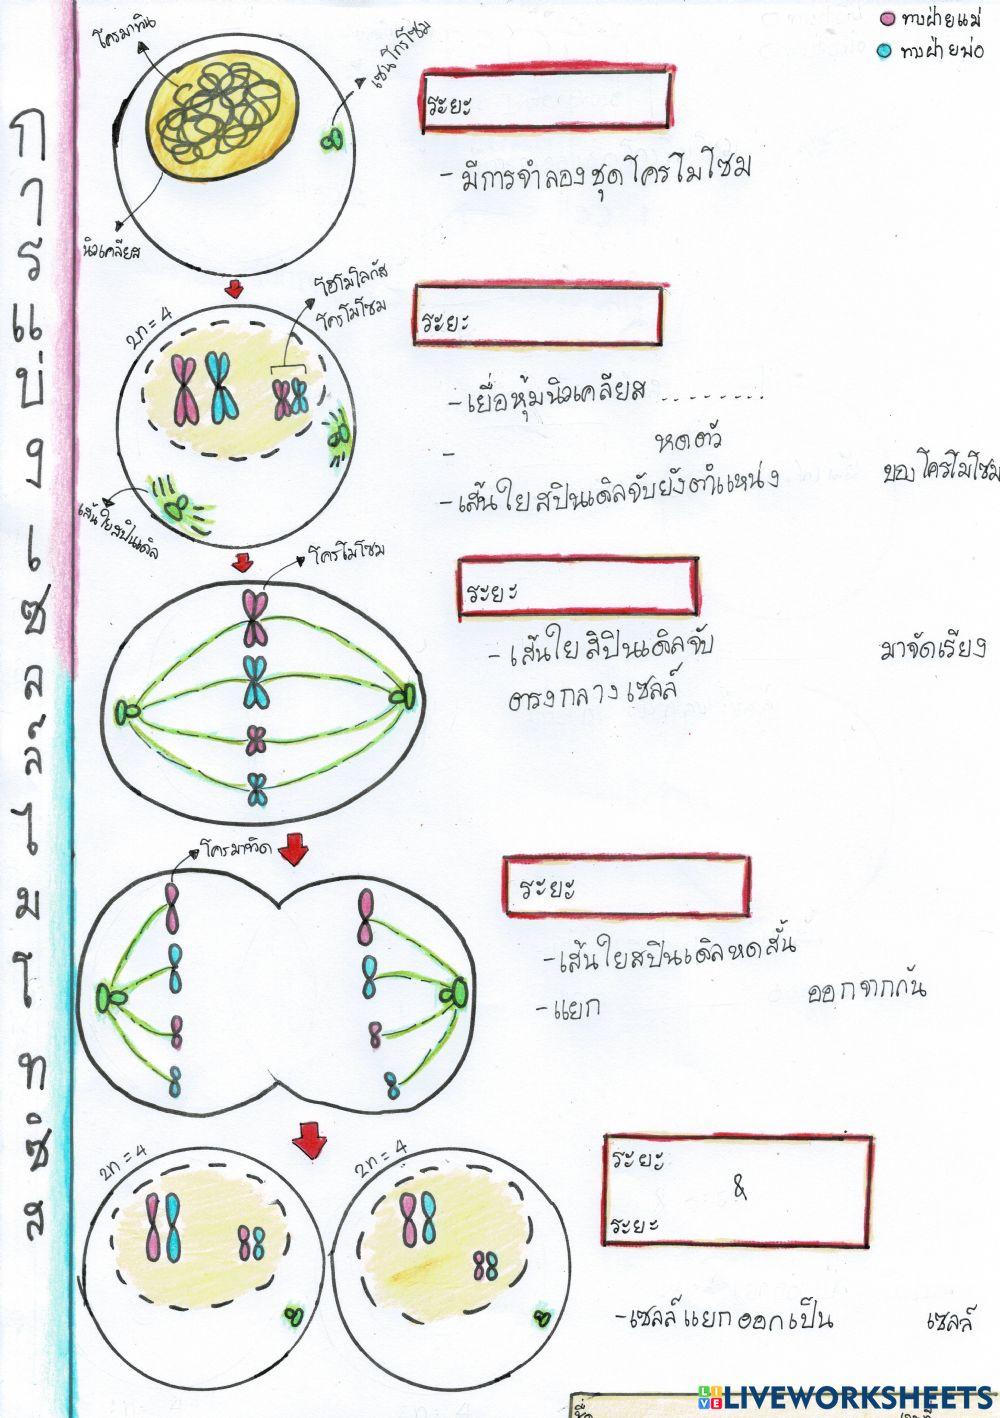 ทางฝ่ายแม่
ทางฝ่ายพ่อ
การแบ่งเซลล์ไมโทซิส
โครมาทิน
เซนโทรโซม
นิวเคลียส
ระยะ
-มีการจำลองชุดโครโมโซม
2n=4
โฮโมโลกัส
โครโมโซม
เส้นใยสปินเดิล
ระยะ
-เยื่อหุ้มนิวเคลียส ........
- หดตัว
-เส้นใยสปินเดิลจับยังตำแหน่ง ของโครโมโซม
โครโมโซม
ระยะ
-เส้นใยสปินเดิลจับ มาจัดเรียง
ตรงกลางเซลล์
โครมาทิด
ระยะ
-เส้นใยสปินเดิลหดสั้น
-แยก ออกจากกัน
2n=4
2n=4
ระยะ
&
ระยะ
-เซลล์แยกออกเป็น เซลล์
LIVEWORKSHEETS